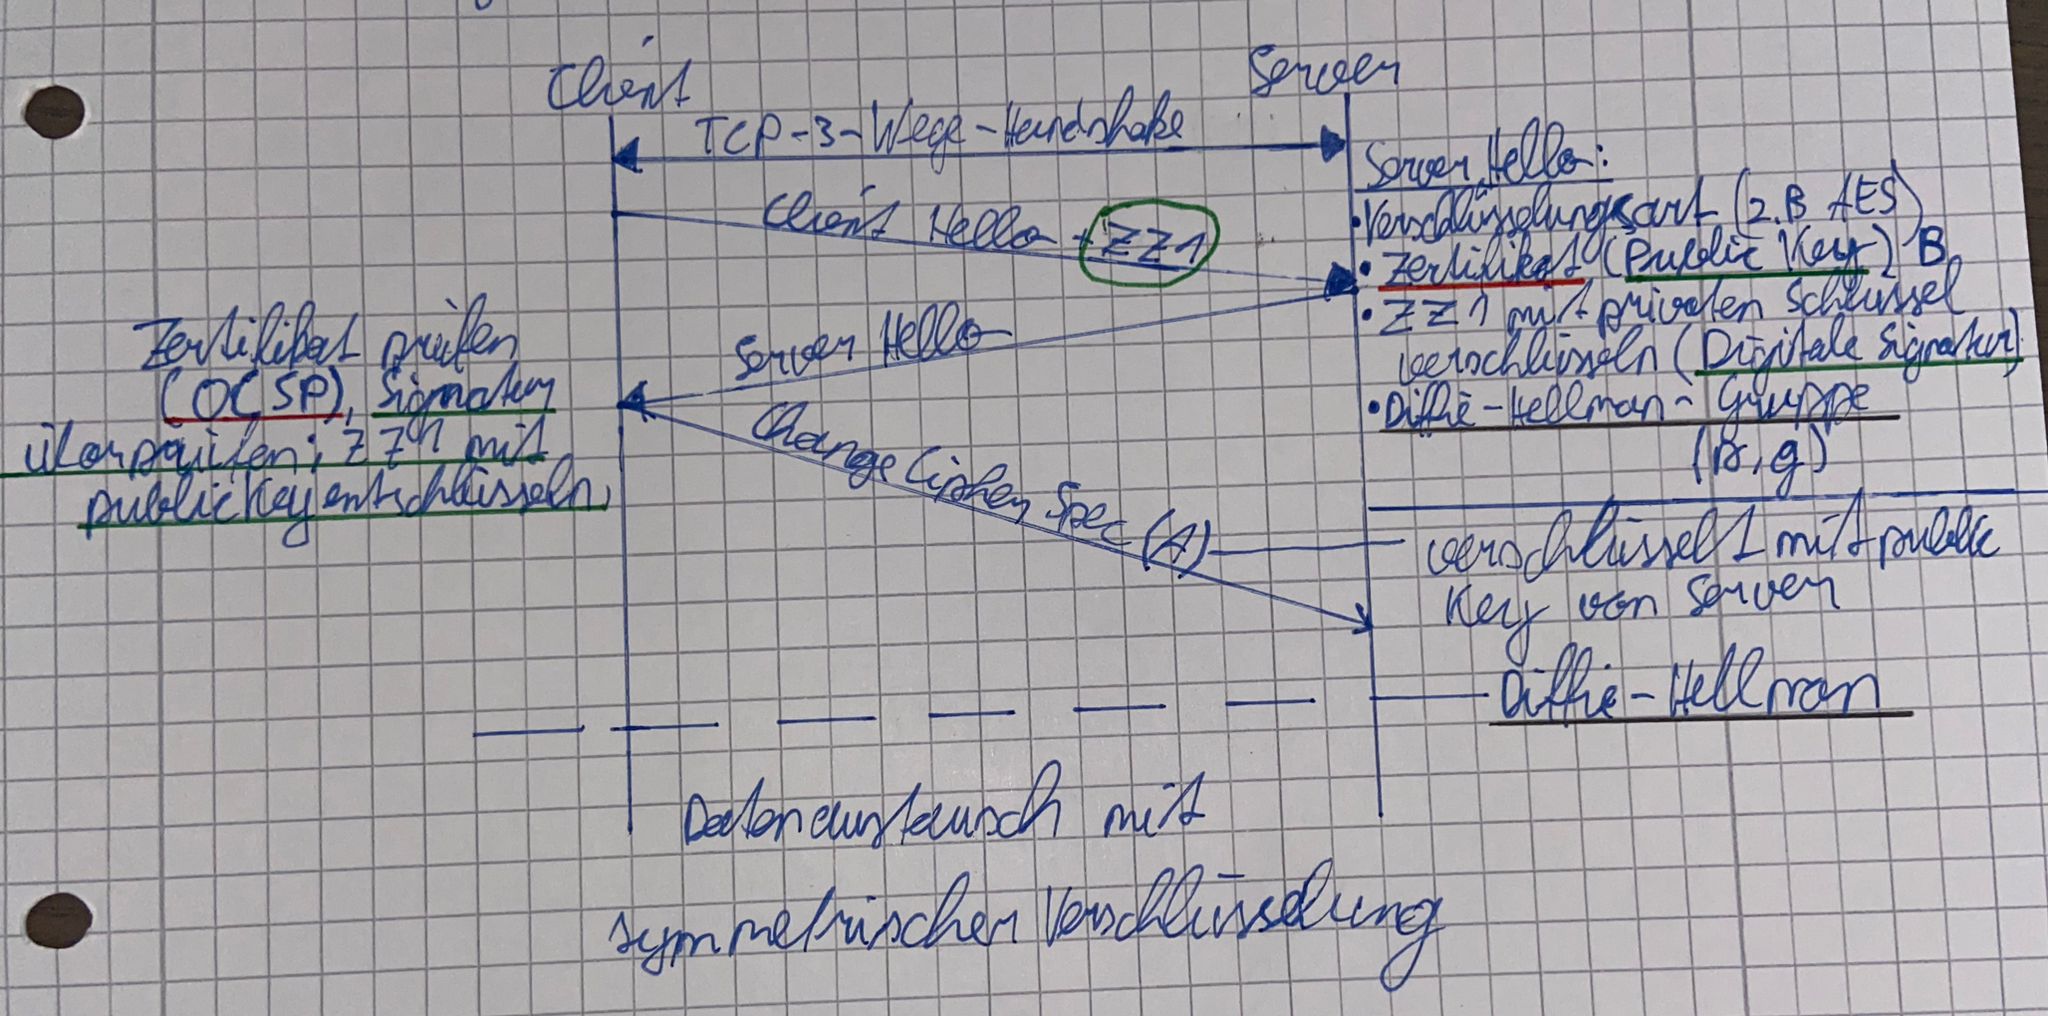 Client
Server
TCP-3-Wege-Handshake
Client Hello + ZZ1
Server Hello:
• Verschlüsselungsart (z.B AES)
• Zertifikat (Public Key) B
• ZZ1 mit privaten Schlüssel
verschlüsseln (Digitale Signatur)
• Diffie-Hellman-Gruppe
(p, g)
Server Hello
Zertifikat prüfen
(OCSP), Signatur
überprüfen; ZZ1 mit
public Key entschlüsseln
Change Cipher Spec (A)
verschlüsselt mit public
Key von Server
Diffie-Hellman
Datenaustausch mit
symmetrischer Verschlüsselung